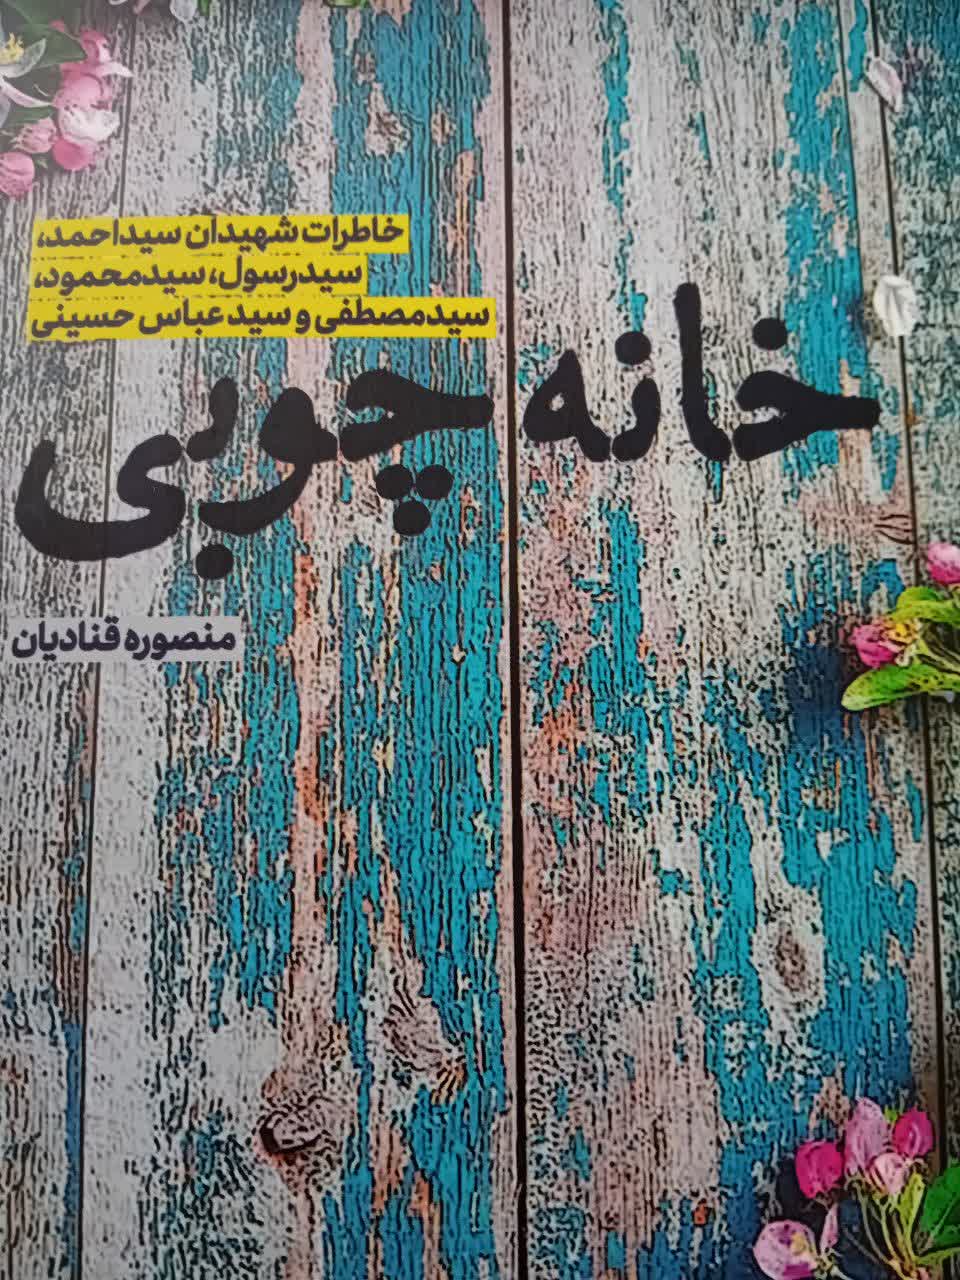 خاطرات شهیدان سیداحمد،
سیدرسول، سیدمحمود،
سیدمصطفی و سیدعباس حسینی
خانه چوبی
منصوره قنادیان